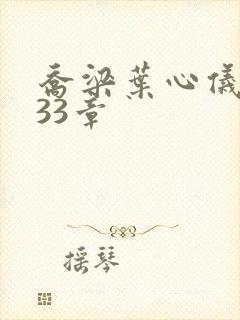 乔梁葉心儀
33章
摇琴